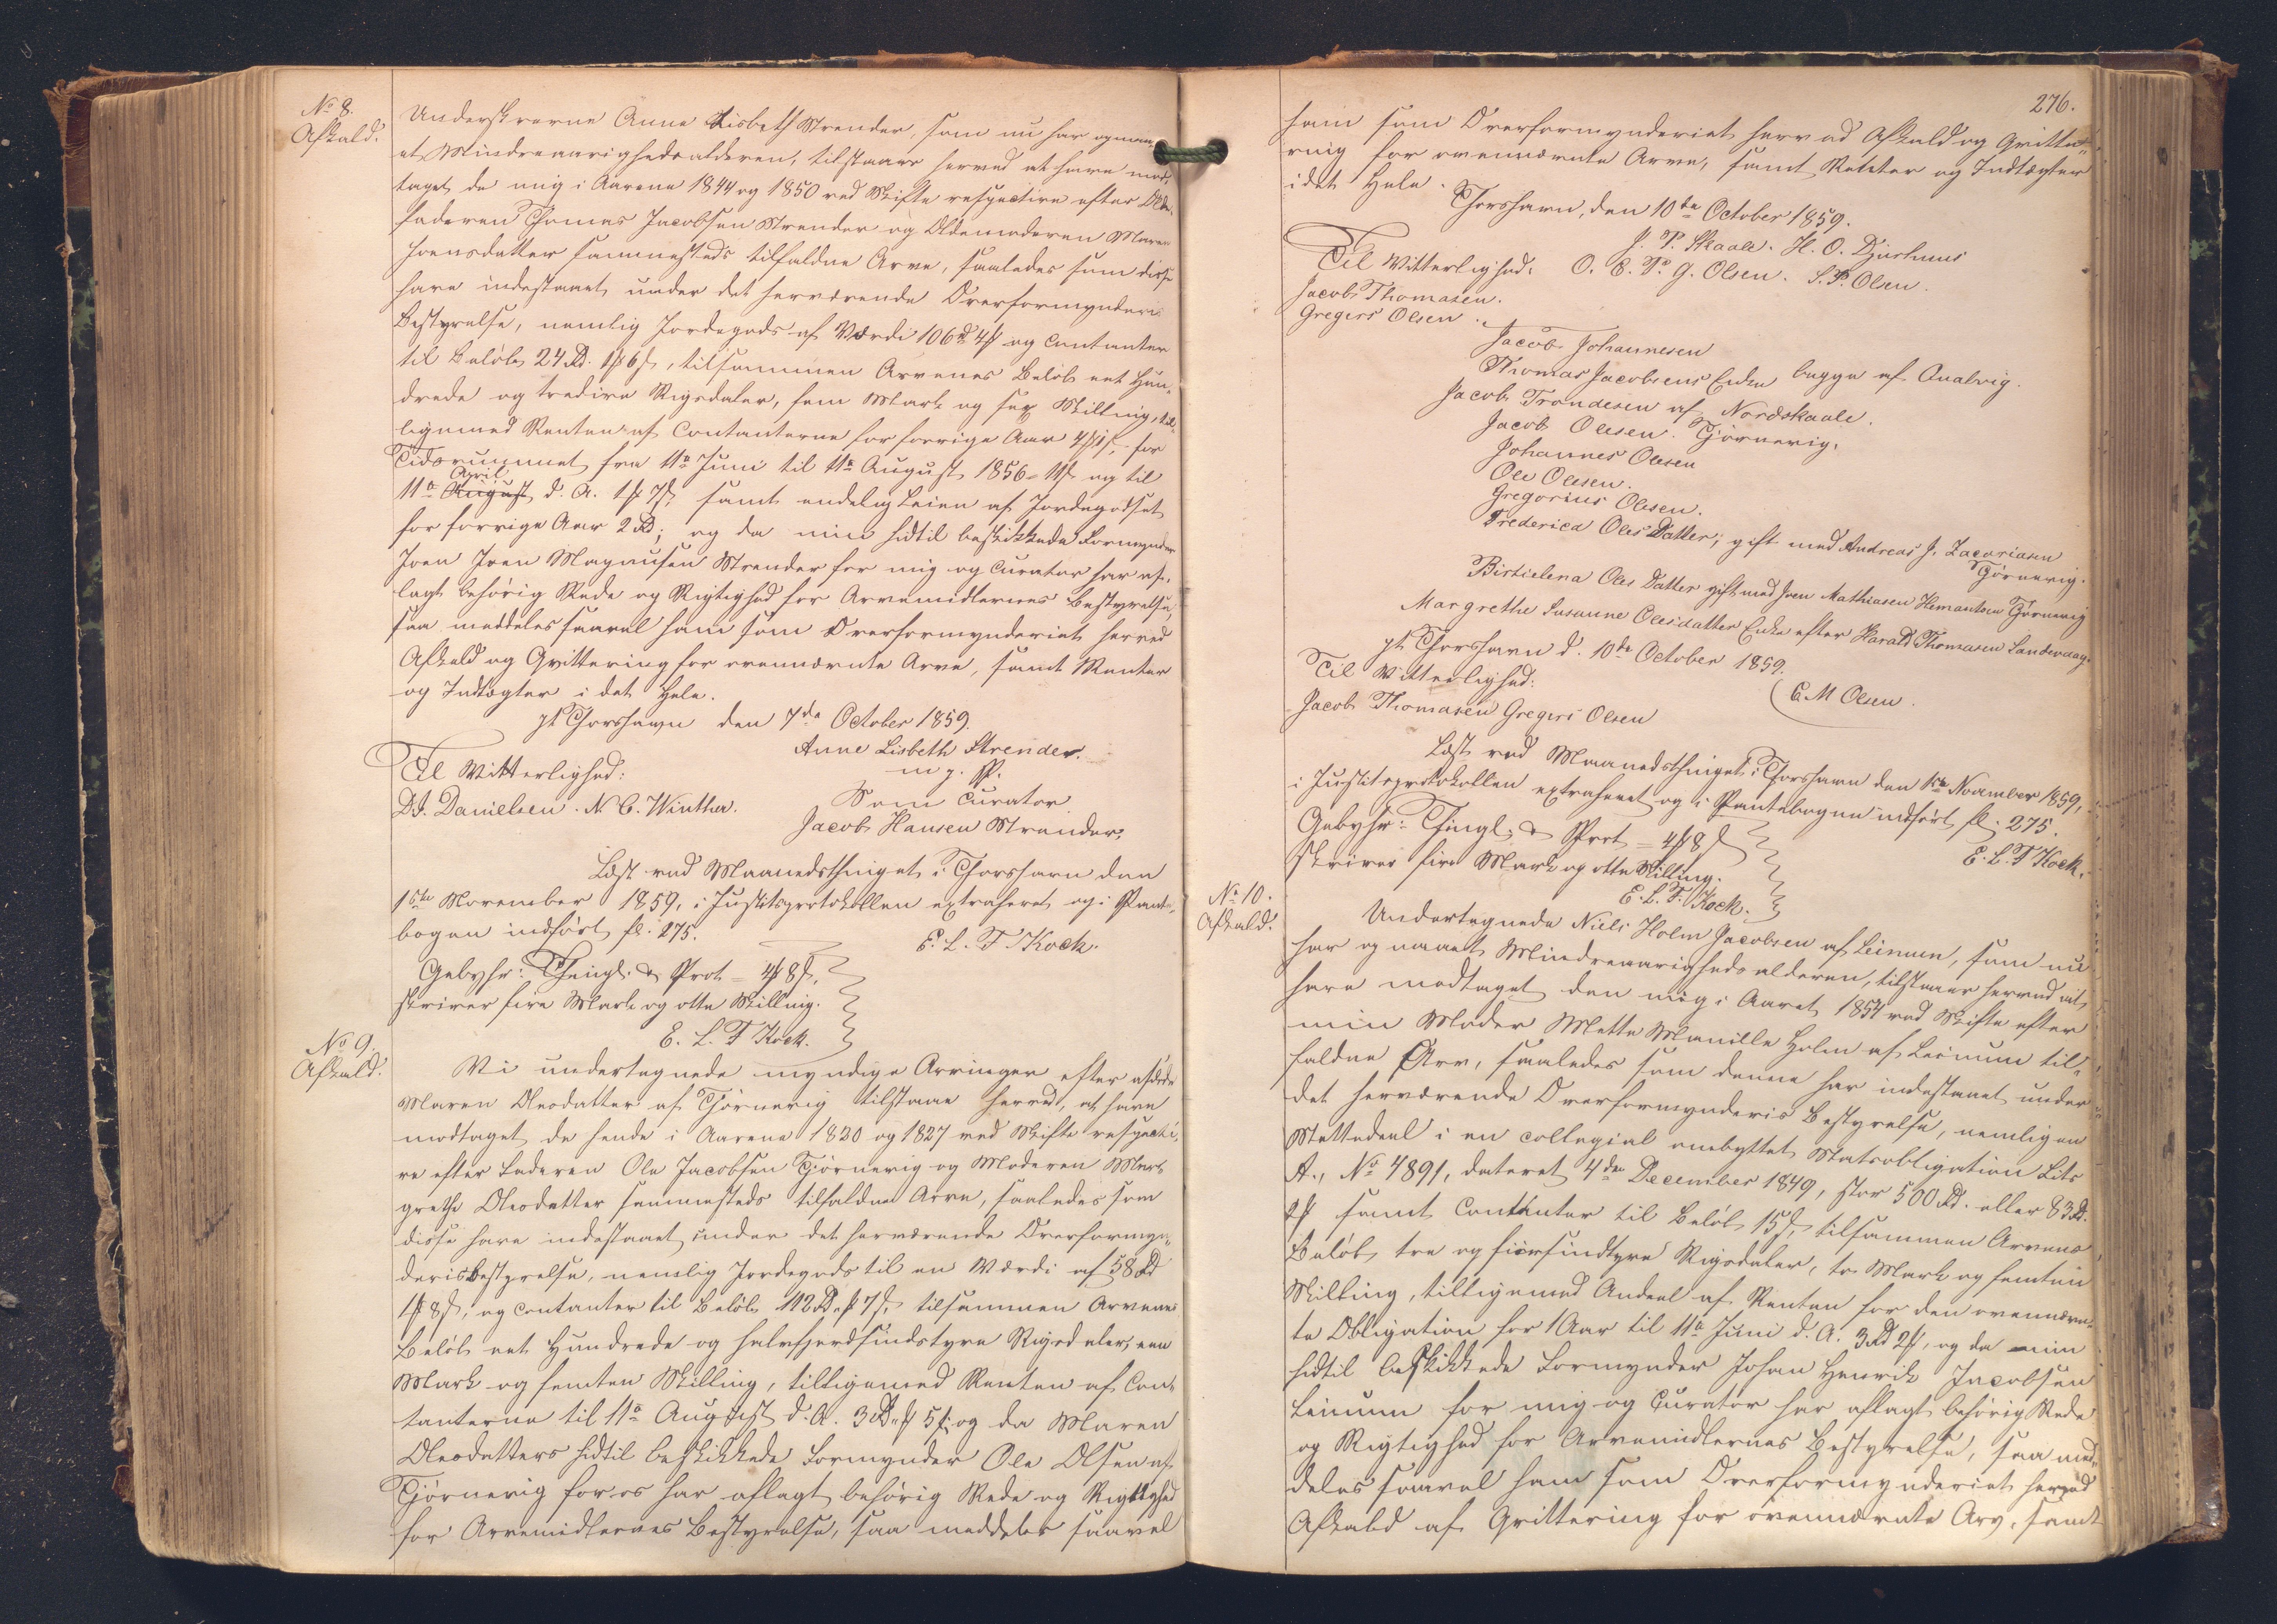 No 8.
Afkald.
Underskrevne Anne Lisbeth Strender, som nu har opnaa-
et Mindreaarighedsalderen, tilstaaer herved at have mod-
taget de mig i Aarene 1844 og 1850 ved Skifte respective efter Olde-
faderen Thomas Jacobsen Strender og Oldemoderen Maren
Joensdatter sammesteds tilfaldne Arve, saaledes som disse
have indestaaet under det herværende Overformynderis
Bestyrelse, nemlig Jordegods af Værdi 106 Rd 4 ß og Contanter
til Beløb 24 Rd. 1 ß 6 s, tilsammen Arvenes Beløb eet Hun-
drede og tredive Rigsdaler, fem Mark og sex Skilling, til-
ligemed Renten af Contanterne for forrige Aar for
Tidsrummet fra 11te Juni til 11te August 1856 og til
April
11te August d. A. 1 ß 7 s, samt endelig Leien af Jordegodset
for forrige Aar 2 Rd; og da min hidtil beskikkede Formynder
Joen Joen Magnussen Strender for mig og Curator har af-
lagt behørig Rede og Rigtighed for Arvemidlernes Bestyrelse,
saa meddeles saavel ham som Overformynderiet herved
Afkald og Qvittering for ovennævnte Arve, samt Renter
og Indtægter i det Hele.
pt Thorshavn den 7de October 1859.
Anne Lisbeth Strender.
m. p. P.
Til Vitterlighed:
Som Curator
D. J. Danielsen. N. C. Winther.
Jacob Hansen Strender.
Læst ved Maanedsthinget i Thorshavn den
1ste November 1859, i Justitsprotokollen extraheret og i Pante-
bogen indført fl. 275.
E. L. T Kock.
Gebyhr: Thingl. & Prot = 4 ß 8 s,
skriver fire Mark og otte Skilling.
E. L. T Kock.
No 9.
Afkald.
Vi undertegnede myndige Arvinger efter afdøde
Maren Olesdatter af Tjørnevig tilstaae herved, at have
modtaget de hende i Aarene 1820 og 1827 ved Skifte respecti-
ve efter Faderen Ole Jacobsen Tjørnevig og Moderen Mar-
grethe Olesdatter sammesteds tilfaldne Arve, saaledes som
disse have indestaaet under det herværende Overformyn-
deris Bestyrelse, nemlig Jordegods til en Værdi af 58 Rd
1 ß 8 s, og Contanter til Beløb 112 Rd " ß 7 s, tilsammen Arvenes
Beløb eet Hundrede og halvfjerdsindstyve Rigsdaler, een
Mark og femten Skilling, tilligemed Renten af Con-
tanterne til 11te August d. A. 3 Rd " ß 5 s; og da Maren
Olesdatters hidtil beskikkede Formynder Ole Olsen af
Tjørnevig for os har aflagt behørig Rede og Rigtighed
for Arvemidlernes Bestyrelse, saa meddeles saavel
276.
ham som Overformynderiet herved Afkald og Qvitte-
ring for ovennævnte Arve, samt Renter og Indtægter
i det Hele.
Thorshavn, den 10de October 1859.
J. P. Skaale. H. O. Djurhuus
Til Vitterlighed: O. C. P. G. Olsen. S. P. Olsen.
Jacob Thomasen.
Gregers Olsen.
Jacob Johannesen
Thomas Jacobsens Enke begge af Qvalvig.
Jacob Trondesen af Nordskaale.
Jacob Olesen. Tjørnevig.
Johannes Olesen
Ole Olesen.
Gregorius Olesen.
Frederica Oles Datter; gift med Andreas J. Zacariasen
Tjørnevig.
Birtielena Oles Datter gift med Joen Mathiasen Hemantsen Tjørnevig
Margrethe Susanne Olesdatter Enke efter Harald Thomasen Sandevaag.
pt Thorshavn d. 10de October 1859.
Til Vitterlighed:
C M Olsen.
Jacob Thomasen Gregers Olsen
Læst ved Maanedsthinget i Thorshavn den 1ste November 1859,
i Justitsprotokollen extraheret og i Pantebogen indført fl. 275.
E. L. T Kock.
Gebyhr: Thingl. & Prot = 4 ß 8 s
skriver fire Mark og otte Skilling.
E. L. T. Kock.
No 10.
Afkald.
Undertegnede Niels Holm Jacobsen af Leinum, som nu
har opnaaet Mindreaarighedsalderen, tilstaaer herved at
have modtaget den mig i Aaret 1854 ved Skifte efter
min Moder Mette Manille Holm af Leinum til-
faldne Arv, saaledes som denne har indestaaet under
det herværende Overformynderis Bestyrelse, nemlig en
Sjettedeel i en collegial ombyttet Statsobligation Litr
A., No 4891, dateret 4de December 1849, stor 500 Rd. eller 83 Rd.
2 ß samt Contanter til Beløb 15 s, tilsammen Arvens
Beløb tre og fiirsindstyve Rigsdaler, to Mark og femten
Skilling, tilligemed Andeel af Renten for den ovennævn-
te Obligation for 1 Aar til 11te Juni d. A. 3 Rd 2 ß, og da min
hidtil beskikkede Formynder Johan Henrik Jacobsen
Leinum for mig og Curator har aflagt behørig Rede
og Rigtighed for Arvemidlernes Bestyrelse, saa med-
deles saavel ham som Overformynderiet herved
Afkald af Qvittering for ovennævnte Arv, samt